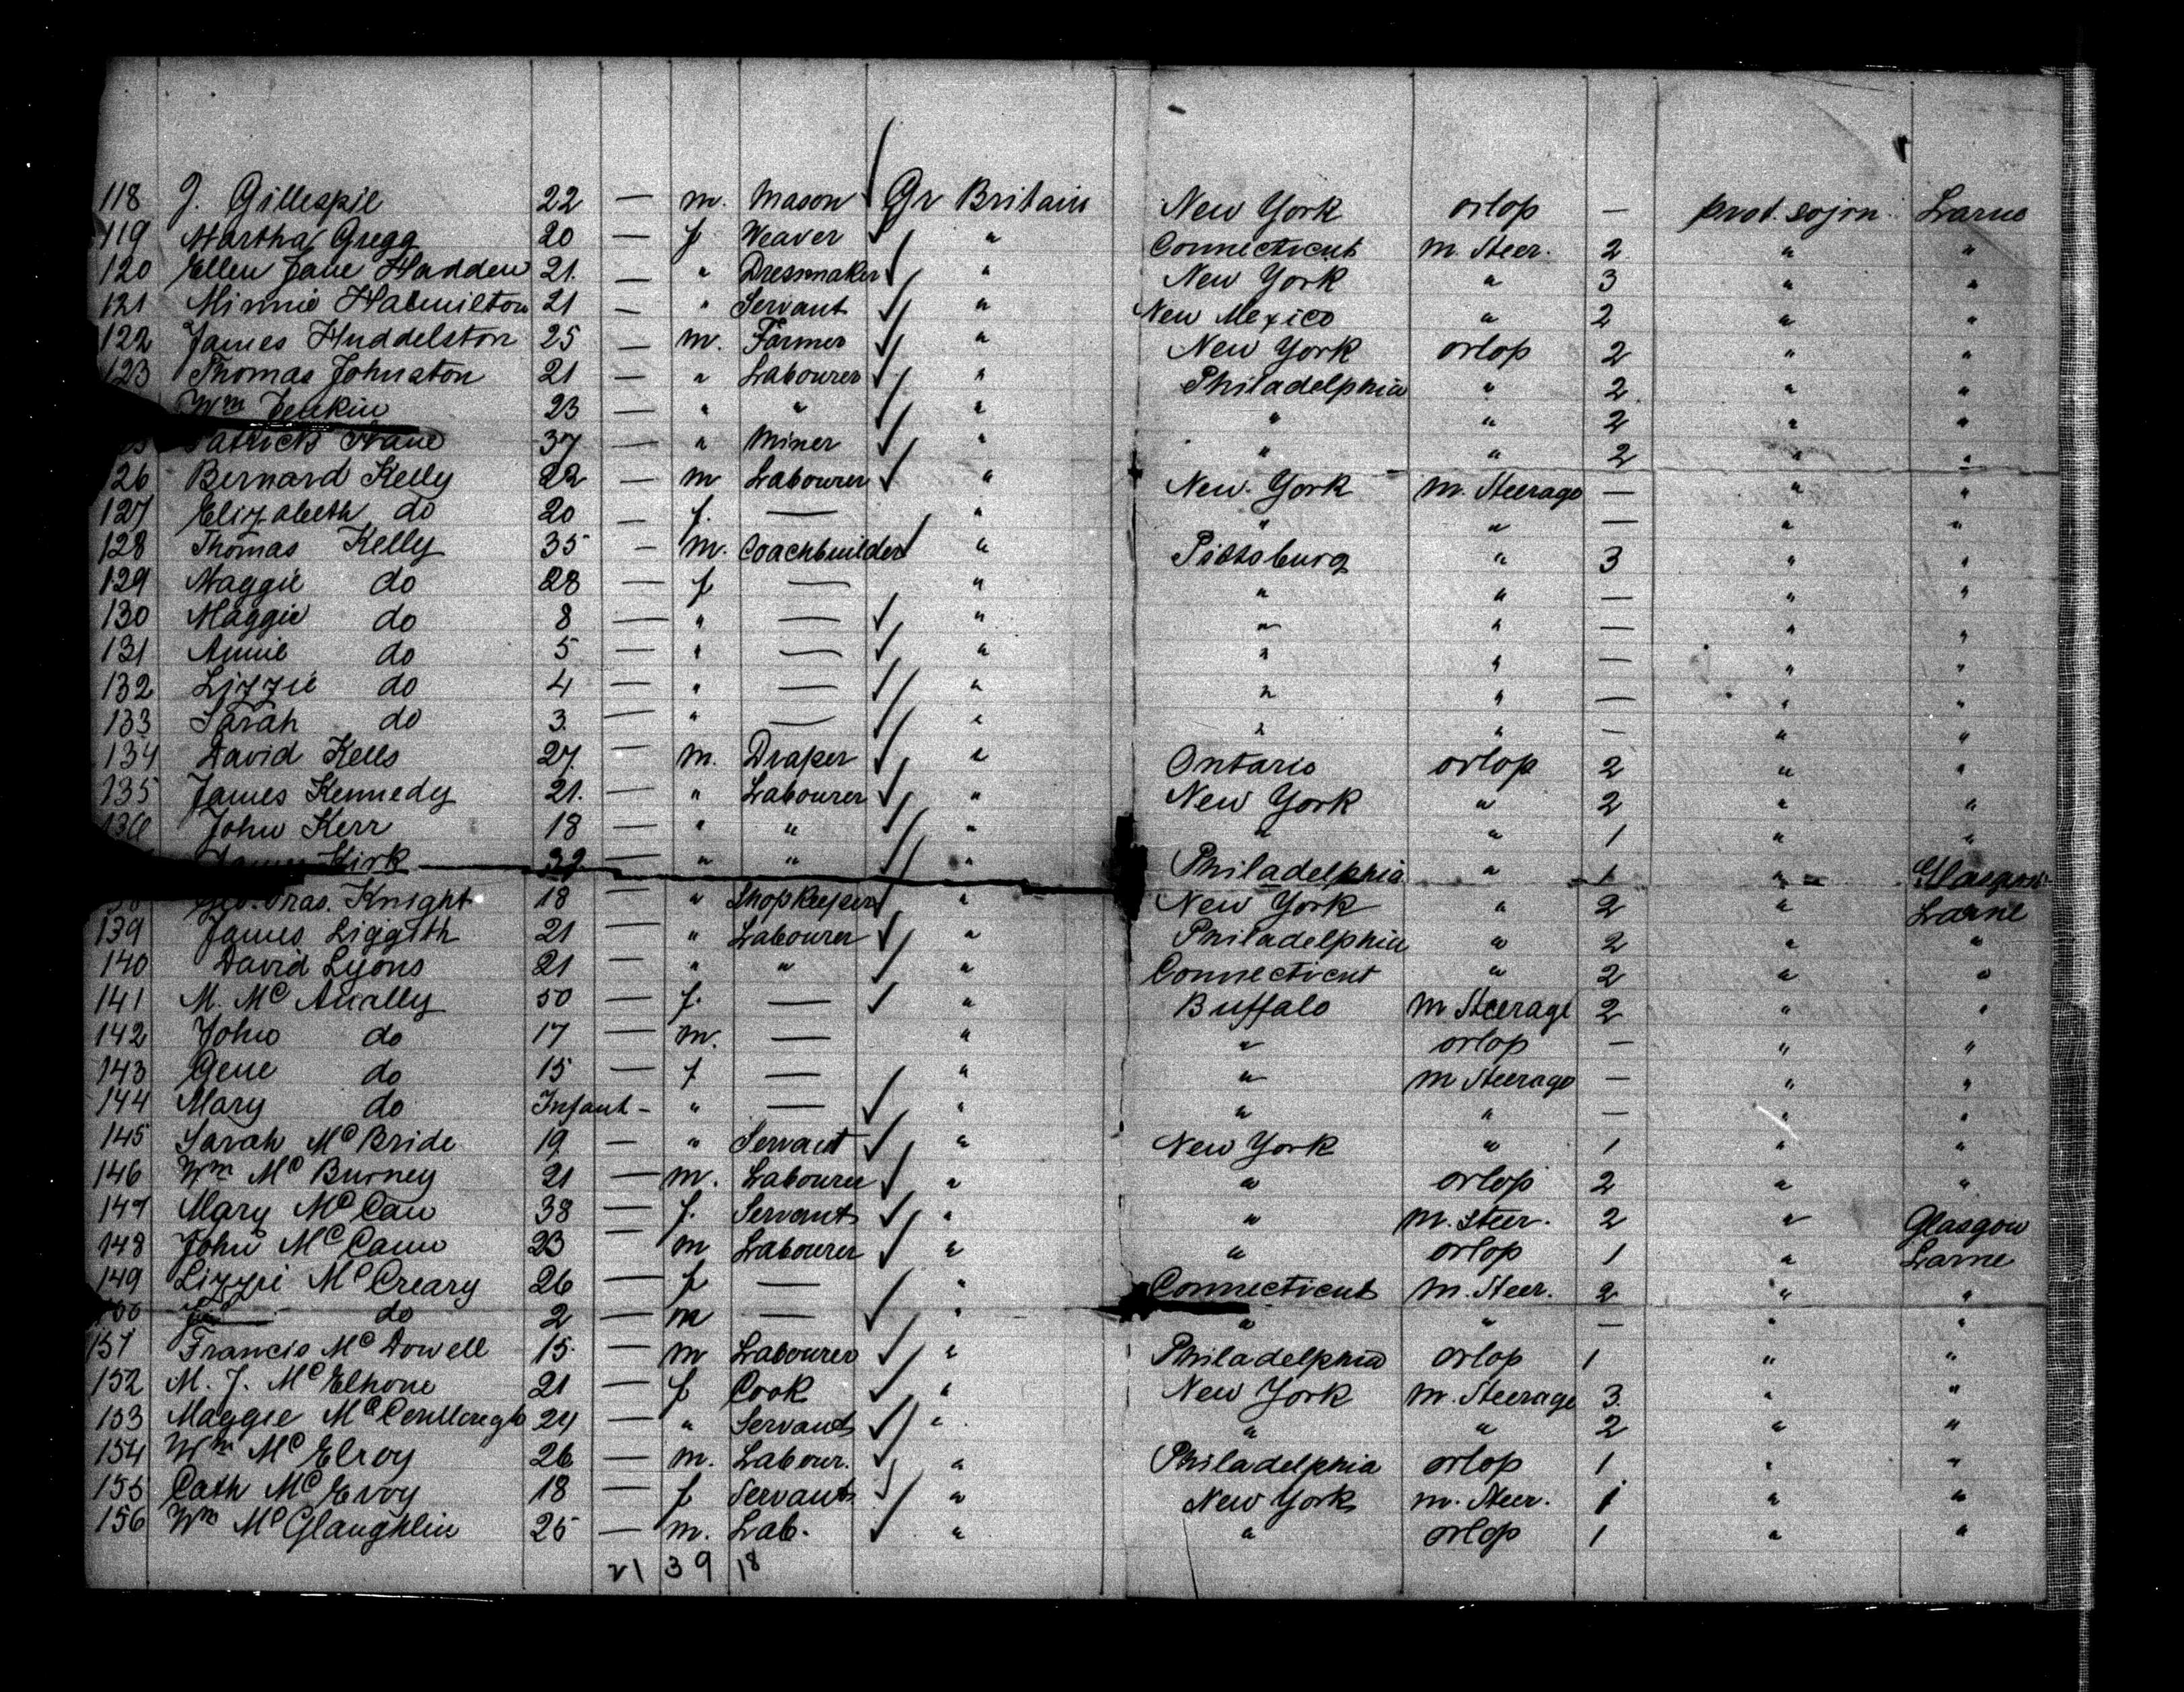 118 J. Gillespie 22 — m. Mason ✓ Gr Britain New York orlop — prot. sojrn. Larne
119 Martha Gregg 20 — f Weaver ✓ " Connecticut M. Steer. 2 " "
120 Ellen Jane Hadden 21. — " Dressmaker ✓ " New York " 3 " "
121 Minnie Hamilton 21 — " Servant ✓ " New Mexico " 2 " "
122 James Huddelston 25 — m. Farmer ✓ " New York orlop 2 " "
123 Thomas Johnston 21 — " Labourer ✓ " Philadelphia " 2 " "
Wm Jenkin 23 — " " ✓ " " " 2 " "
Patrick Kane 37 — " Miner ✓ " " " 2 " "
126 Bernard Kelly 22 — m Labourer ✓ " New York M. Steerage — " "
127 Elizabeth do 20 — f. — " " " — " "
128 Thomas Kelly 35 — m. Coachbuilder ✓ " Pittsburg " 3 " "
129 Maggie do 28 — f — " " " — " "
130 Maggie do 8 — " — ✓ " " " — " "
131 Annie do 5 — " — ✓ " " " — " "
132 Lizzie do 4 — " — ✓ " " " — " "
133 Sarah do 3. — " — ✓ " " " — " "
134 David Kells 27. — m. Draper ✓ " Ontario orlop 2 " "
135 James Kennedy 21. — " Labourer ✓ " New York " 2 " "
136 John Kerr 18 — " " ✓ " " " 1 " "
Kirk — " " ✓ " Philadelphia " 1 " Glasgow
Knight 18 — " Shopkeeper ✓ " New York " 2 " Larne
139 James Liggith 21 — " Labourer ✓ " Philadelphia " 2 " "
140 David Lyons 21 — " " ✓ " Connecticut " 2 " "
141 M. Mc Anally 50 — f. — ✓ " Buffalo M Steerage 2 " "
142 John do 17 — m. — " " orlop — " "
143 Gene do 15 — f — " " M Steerage — " "
144 Mary do Infant — " — ✓ " " " — " "
145 Sarah Mc Bride 19 — " Servant ✓ " New York " 1 " "
146 Wm Mc Burney 21 — m. Labourer ✓ " " orlop 2 " "
147 Mary Mc Can 38 — f. Servant ✓ " " M. Steer. 2 " Glasgow
148 John Mc Cann 23 — m Labourer ✓ " " orlop 1 " Larne
149 Lizzie Mc Creary 26 — f — ✓ " Connecticut M. Steer. 2 " "
150 do 2 — m — ✓ " " " — " "
151 Francis Mc Dowell 15. — m Labourer ✓ " Philadelphia orlop 1 " "
152 M. J. Mc Elhone 21 — f Cook ✓ " New York M. Steerage 3. " "
153 Maggie Mc Cullough 24 — " Servant ✓ " " " 2 " "
154 Wm Mc Elroy 26 — m. Labour. ✓ " Philadelphia orlop 1 " "
155 Cath Mc Evoy 18 — f Servant ✓ " New York M. Steer. 1 " "
156 Wm Mc Glaughlin 25 — m. Lab. ✓ " " orlop 1 " "
21 39 18